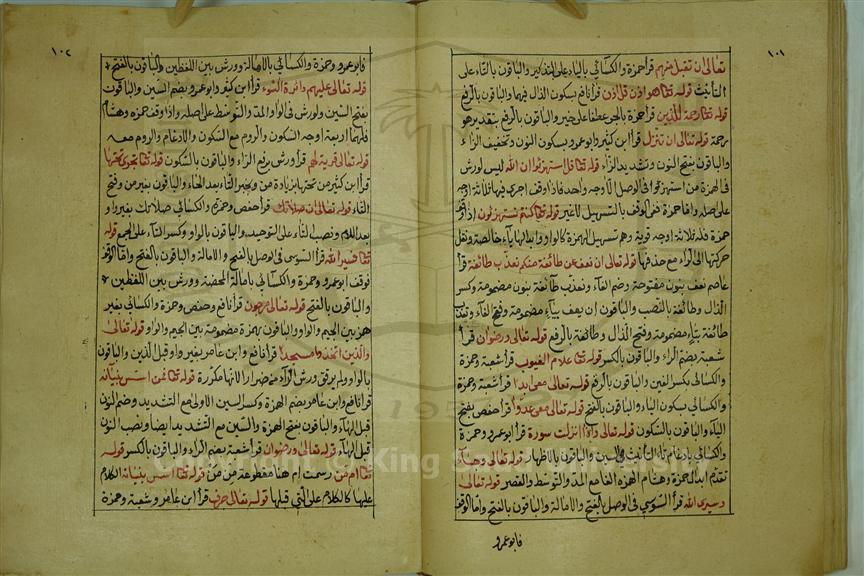 ١٠١
تعالى ان تقبل منهم قرأ حمزة والكسائي بالياء على التذكير والباقون بالتاء على
التأنيث قوله تعالى هو اذن قل اذن قرأ نافع بسكون الذال فيها والباقون بالرفع
قوله تعالى ورحمة للذين قرأ حمزة بالجر عطفا على خير والباقون بالرفع بتقدير هو
رحمة قوله تعالى ان تنزل قرأ ابن كثير وابو عمرو بسكون النون وتخفيف الزاء
والباقون بفتح النون وتشديد الزاء قوله تعالى قل استهزئوا ان الله ليس لورش
في الهمزة من استهزئوا في الوصل الا وجه واحد فاذا وقف اجرى فيها ثلاثة اوجه
على اصله واما حمزة ففي الوقف بالتسهيل لا غير قوله تعالى كنتم تستهزئون اذا وقف
حمزة فله ثلاثة اوجه قوية وهم تسهيل الهمزة كالواو وابدالها ياء خالصة ونقل
حركتها الى الزاء مع حذفها قوله تعالى ان نعف عن طائفة منكم نعذب طائفة قرأ
عاصم نعف بنون مفتوحة وضم الفاء ونعذب طائفة بنون مضمومة وكسر
الذال وطائفة بالنصب والباقون ان يعف بياء مضمومة وفتح الفاء وتعذب
طائفة بتاء مضمومة وفتح الذال وطائفة بالرفع قوله تعالى ورضوان قرأ
شعبة بضم الراء والباقون بالكسر قوله تعالى علام الغيوب قرأ شعبة وحمزة
والكسائي بكسر الغين والباقون بالرفع قوله تعالى معي ابدا قرأ شعبة وحمزة
والكسائي بسكون الياء والباقون بالفتح قوله تعالى معي عدوا قرأ حفص بفتح
الياء والباقون بالسكون قوله تعالى واذا انزلت سورة قرأ ابو عمرو وحمزة
والكسائي بادغام تاء التأنيث في السين والباقون بالاظهار قوله تعالى وجاء
تقدم ابدال حمزة وهشام الهمزة الفا مع المد والتوسط والقصر قوله تعالى
وسيرى الله قرأ السوسي في الوصل بالفتح والامالة والباقون بالفتح واما الوقف
فابو عمرو
١٠٢
فابو عمرو وحمزة والكسائي بالامالة وورش بين اللفظين والباقون بالفتح
قوله تعالى عليهم دائرة السوء قرأ ابن كثير وابو عمرو بضم السين والباقون
بفتح السين ولورش في الواو المد والتوسط على اصله واذا وقف حمزة وهشام
فلهما اربعة اوجه السكون والروم مع السكون والادغام والروم معه
قوله تعالى قربة لهم قرأ ورش برفع الراء والباقون بالسكون قوله تعالى تجري تحتها
قرأ ابن كثير من تحتها بزيادة من وبجر التاء بعد الحاء والباقون بغير من وفتح
التاء قوله تعالى ان صلاتك قرأ حفص وحمزة والكسائي صلاتك بغير واو
بعد اللام ونصب التاء على التوحيد والباقون بالواو وكسر التاء على الجمع قوله
تعالى فسيرى الله قرأ السوسي في الوصل بالفتح والامالة والباقون بالفتح واما الوقف
فوقف ابو عمرو وحمزة والكسائي بامالة المحضة وورش بين اللفظين
والباقون بالفتح قوله تعالى مرجون قرأ نافع وحفص وحمزة والكسائي بغير
همز بين الجيم والواو والباقون بهمزة مضمومة بين الجيم والواو قوله تعالى
والذين اتخذوا مسجدا قرأ نافع وابن عامر بغير واو قبل الذين والباقون
بالواو ولم يرقق ورش الراء من ضرارا لانها مكررة قوله تعالى افمن اسس بنيانه
قرأ نافع وابن عامر بضم الهمزة وكسر السين الاولى مع التشديد وضم النون
قبل الهاء والباقون بفتح الهمزة والسين مع التشديد ايضا ونصب النون
قبل الهاء قوله تعالى ورضوان قرأ شعبة بضم الراء والباقون بالكسر قوله
تعالى ام من رسمت ام هنا مقطوعة من من قوله تعالى اسس بنيانه الكلام
عليها كالكلام على التي قبلها قوله تعالى جرف قرأ ابن عامر وشعبة وحمزة
Copyright © King Saud University